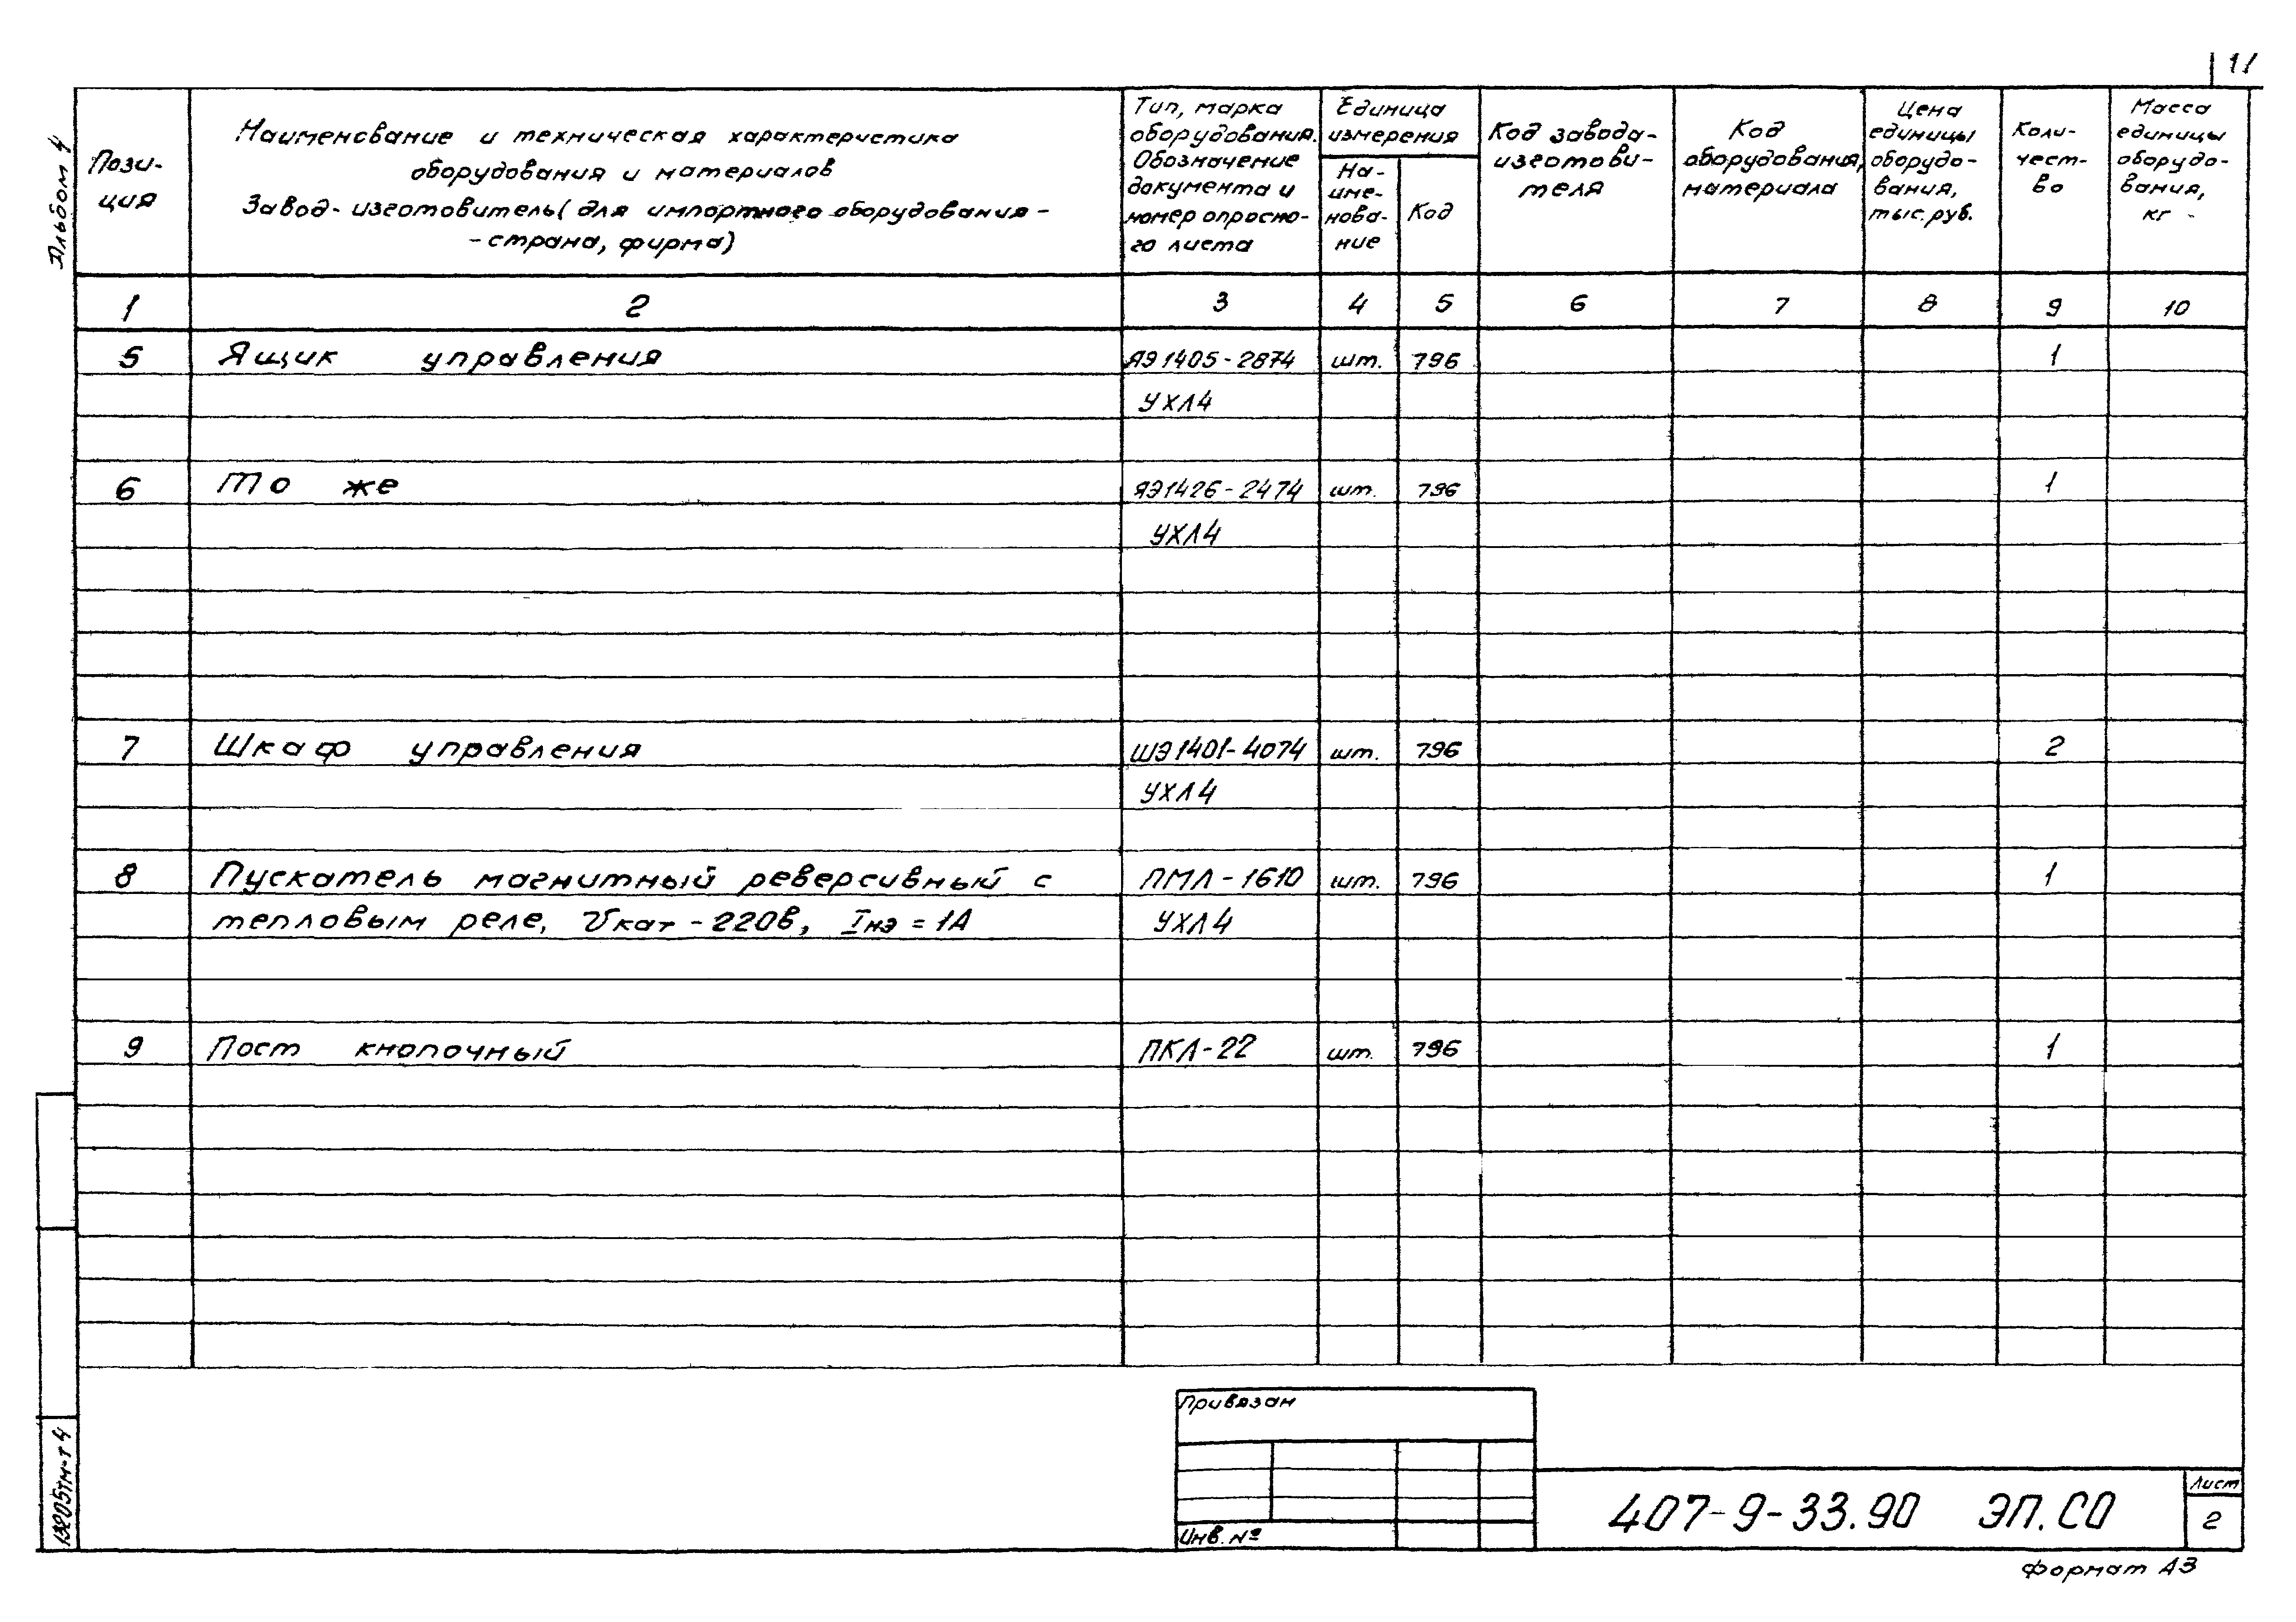 11
Альбом 4
Пози-
ция
Наименование и техническая характеристика
оборудования и материалов
Завод-изготовитель (для импортного оборудования -
- страна, фирма)
Тип, марка
оборудования.
Обозначение
документа и
номер опросно-
го листа
Единица
измерения
На-
име-
нова-
ние
Код
Код завода-
изготови-
теля
Код
оборудования,
материала
Цена
единицы
оборудо-
вания,
тыс. руб.
Коли-
чест-
во
Масса
единицы
оборудо-
вания,
кг
1 2 3 4 5 6 7 8 9 10
5 Ящик управления ЯЭ1405-2874 шт. 796 1
УХЛ4
6 То же ЯЭ1426-2474 шт. 796 1
УХЛ4
7 Шкаф управления ШЭ1401-4074 шт. 796 2
УХЛ4
8 Пускатель магнитный реверсивный с ПМЛ-1610 шт. 796 1
тепловым реле, Uкат-220в, Iнэ=1А УХЛ4
9 Пост кнопочный ПКЛ-22 шт. 796 1
Привязан
Инв. №
407-9-33.90 ЭП.СО
Лист
2
Формат А3